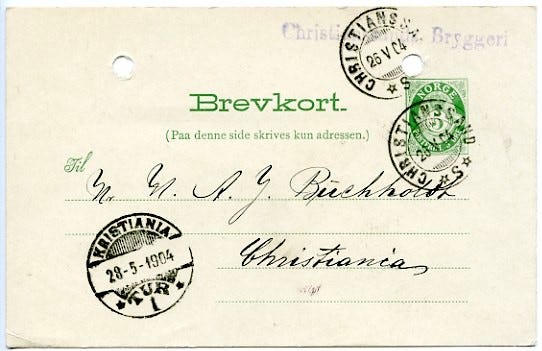 Christianssands Bryggeri
CHRISTIANSSAND S
26 V 04
NORGE
5
Brevkort.
(Paa denne side skrives kun adressen.)
CHRISTIANSSAND S
Til
Hr. N. A. J. Buchholdt
Christiania
KRISTIANIA
28-5-1904
TUR
1